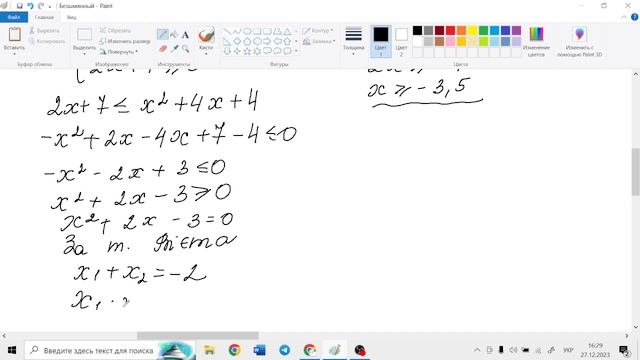 Безымянный - Paint
Файл Главная Вид
Вставить
Вырезать
Копировать
Буфер обмена
Выделить
Обрезать
Изменить размер
Повернуть
Изображение
Инструменты
Кисти
Контур
Заливка
Фигуры
Толщина
Цвет 1
Цвет 2
Цвета
Изменение цветов
Изменить с помощью Paint 3D
x ≥ -3,5
2x+7 ≤ x²+4x+4
-x²+2x-4x+7-4≤0
-x²-2x+3≤0
x²+2x-3≥0
x²+2x-3=0
За т. Вієта
x₁+x₂=-2
x₁ ·
Введите здесь текст для поиска
УКР
16:29
27.12.2023